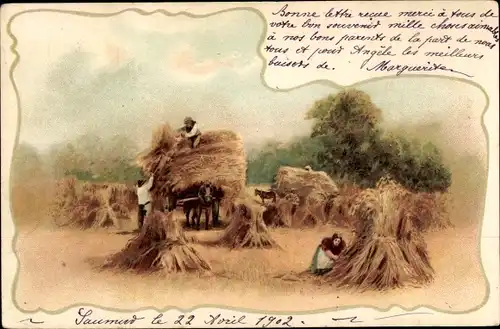 Bonne lettre reçue merci à tous de
votre bon souvenir mille choses aimables
à nos bons parents de la part de nous
tous et pour Angèle les meilleurs
baisers de. Marguerite
Saumur le 22 Avril 1902